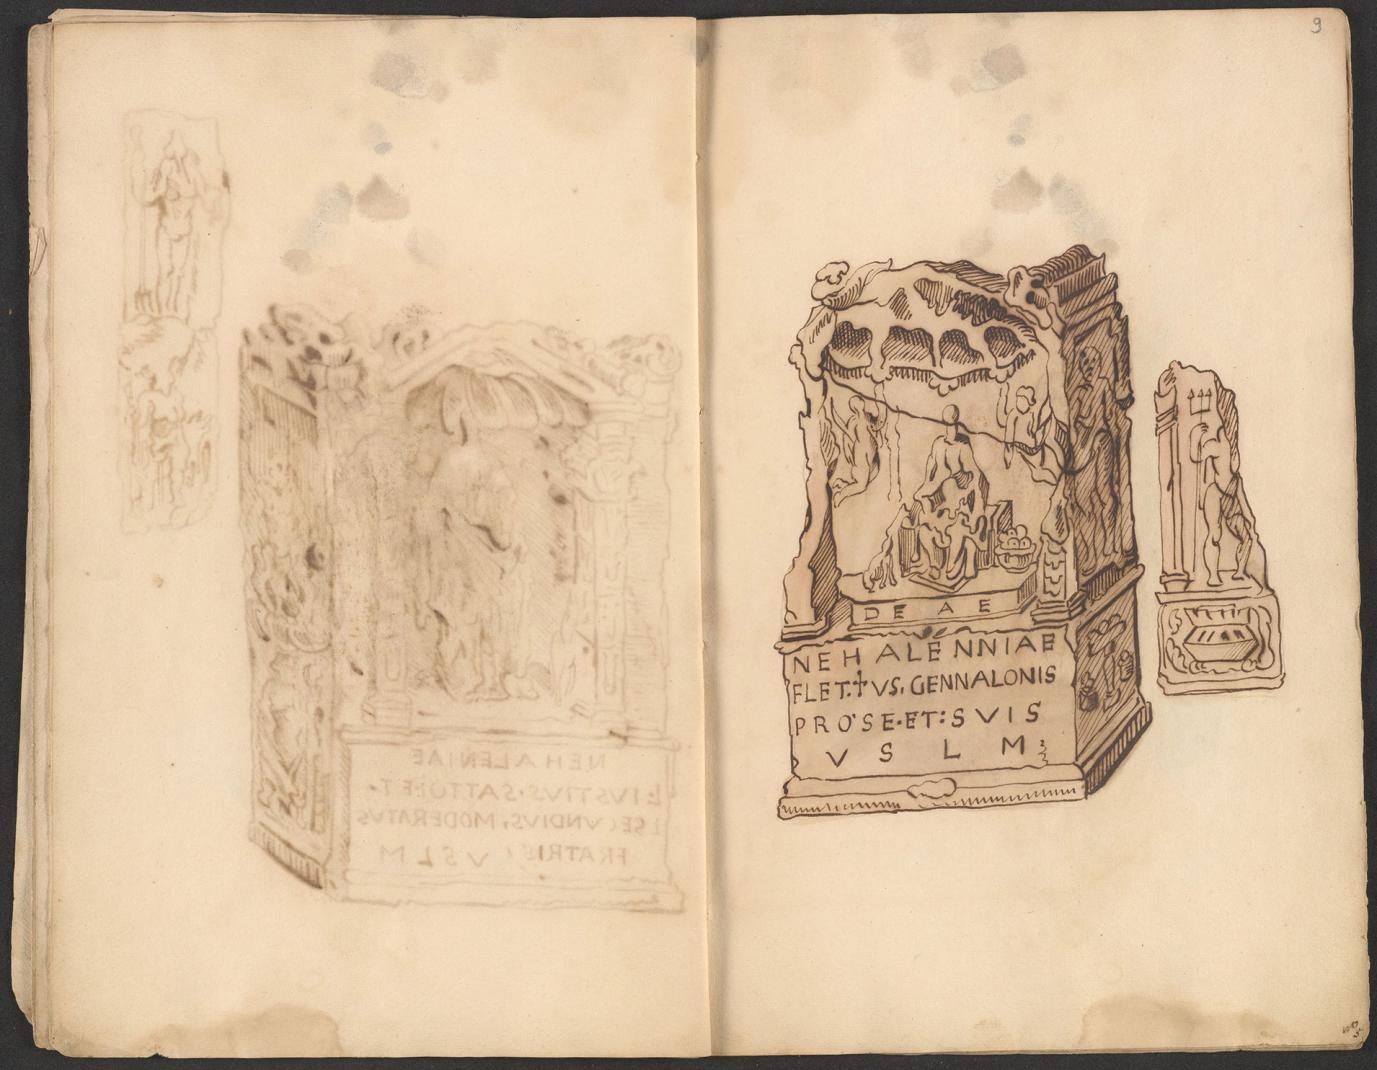 9
DEAE
NEHALENNIAE
FLET.‡VS. GENNALONIS
PRO'SE·ET:SVIS
V S L M
NEHALENIAE
L IVSTIVS·SATTO·ET·
L SECVNDIVS, MODERATVS
FRATRIS VSLM